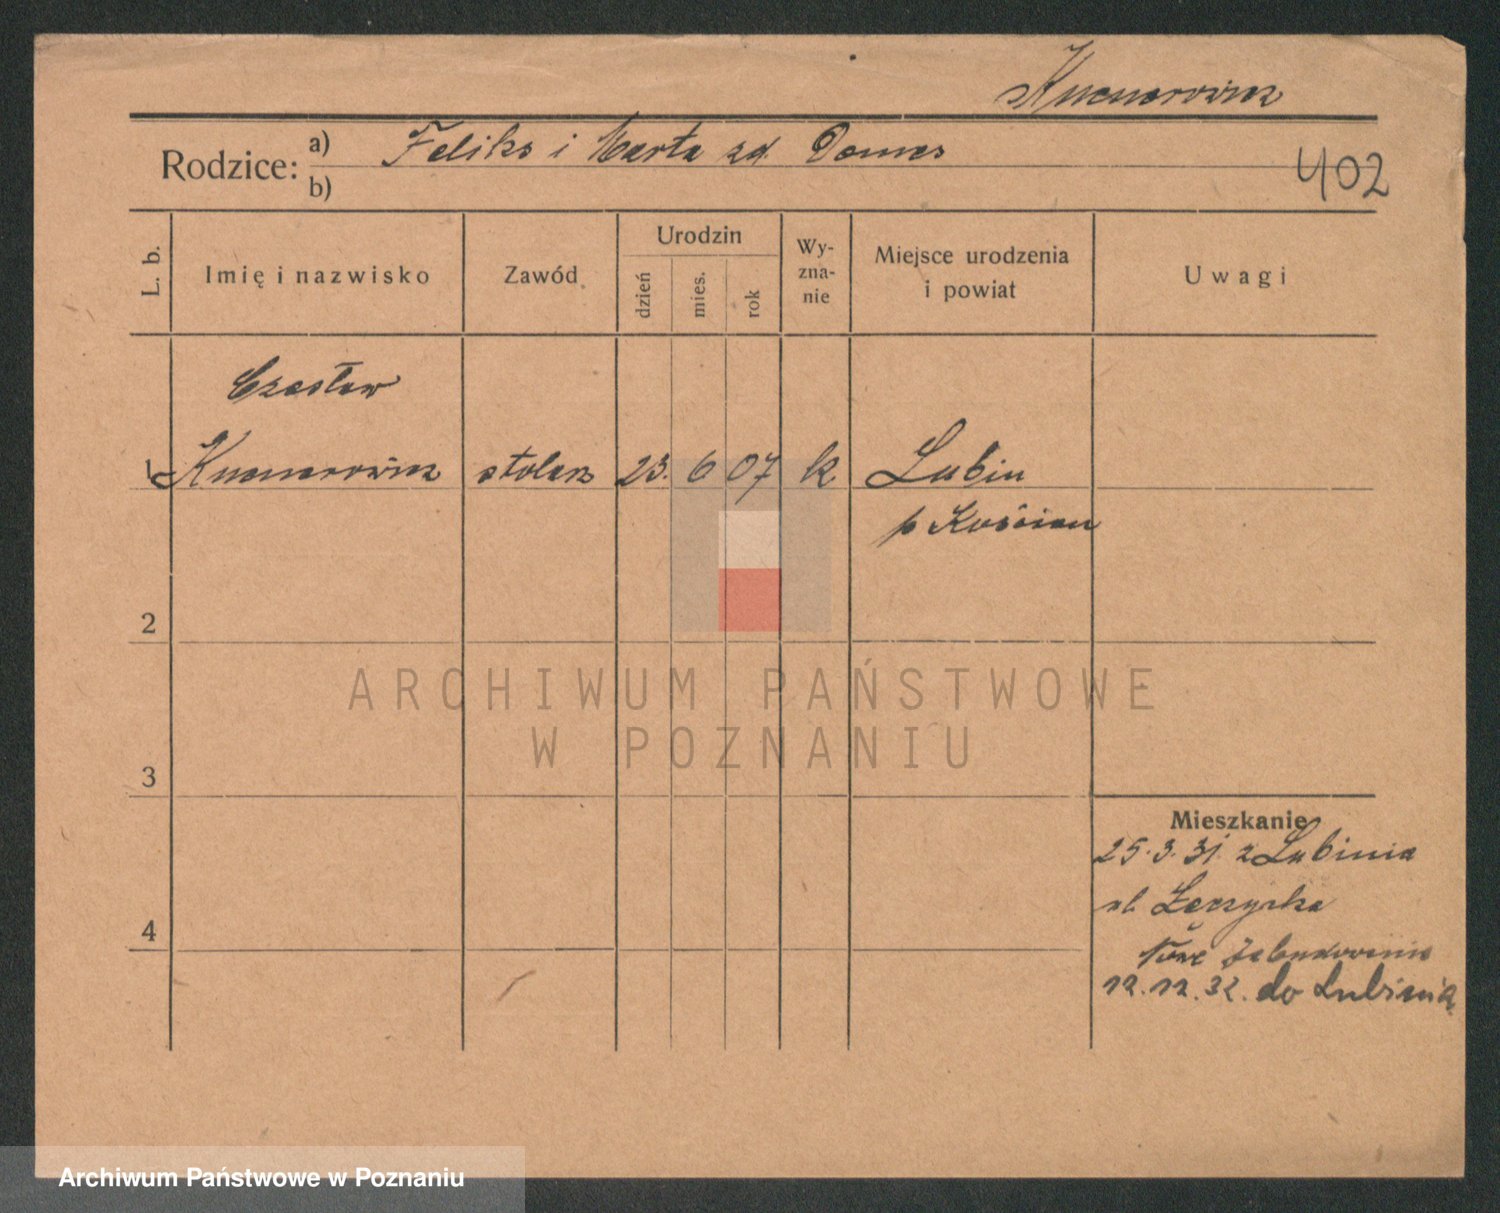 Kucnerowicz
Rodzice: a) Feliks i Marta zd. Domes
b)
402
L. b.
Imię i nazwisko
Zawód
Urodzin
dzień
mies.
rok
Wy-
zna-
nie
Miejsce urodzenia
i powiat
Uwagi
Czesław
1 Kucnerowicz stolarz 23. 6 07 k Lubin
p Kościan
2
3
4
Mieszkanie
25.3.31. z Lubinia
ul. Łęczycka
Nowe Zabudowania
12.12.32. do Lubinia
ARCHIWUM PAŃSTWOWE
W POZNANIU
Archiwum Państwowe w Poznaniu